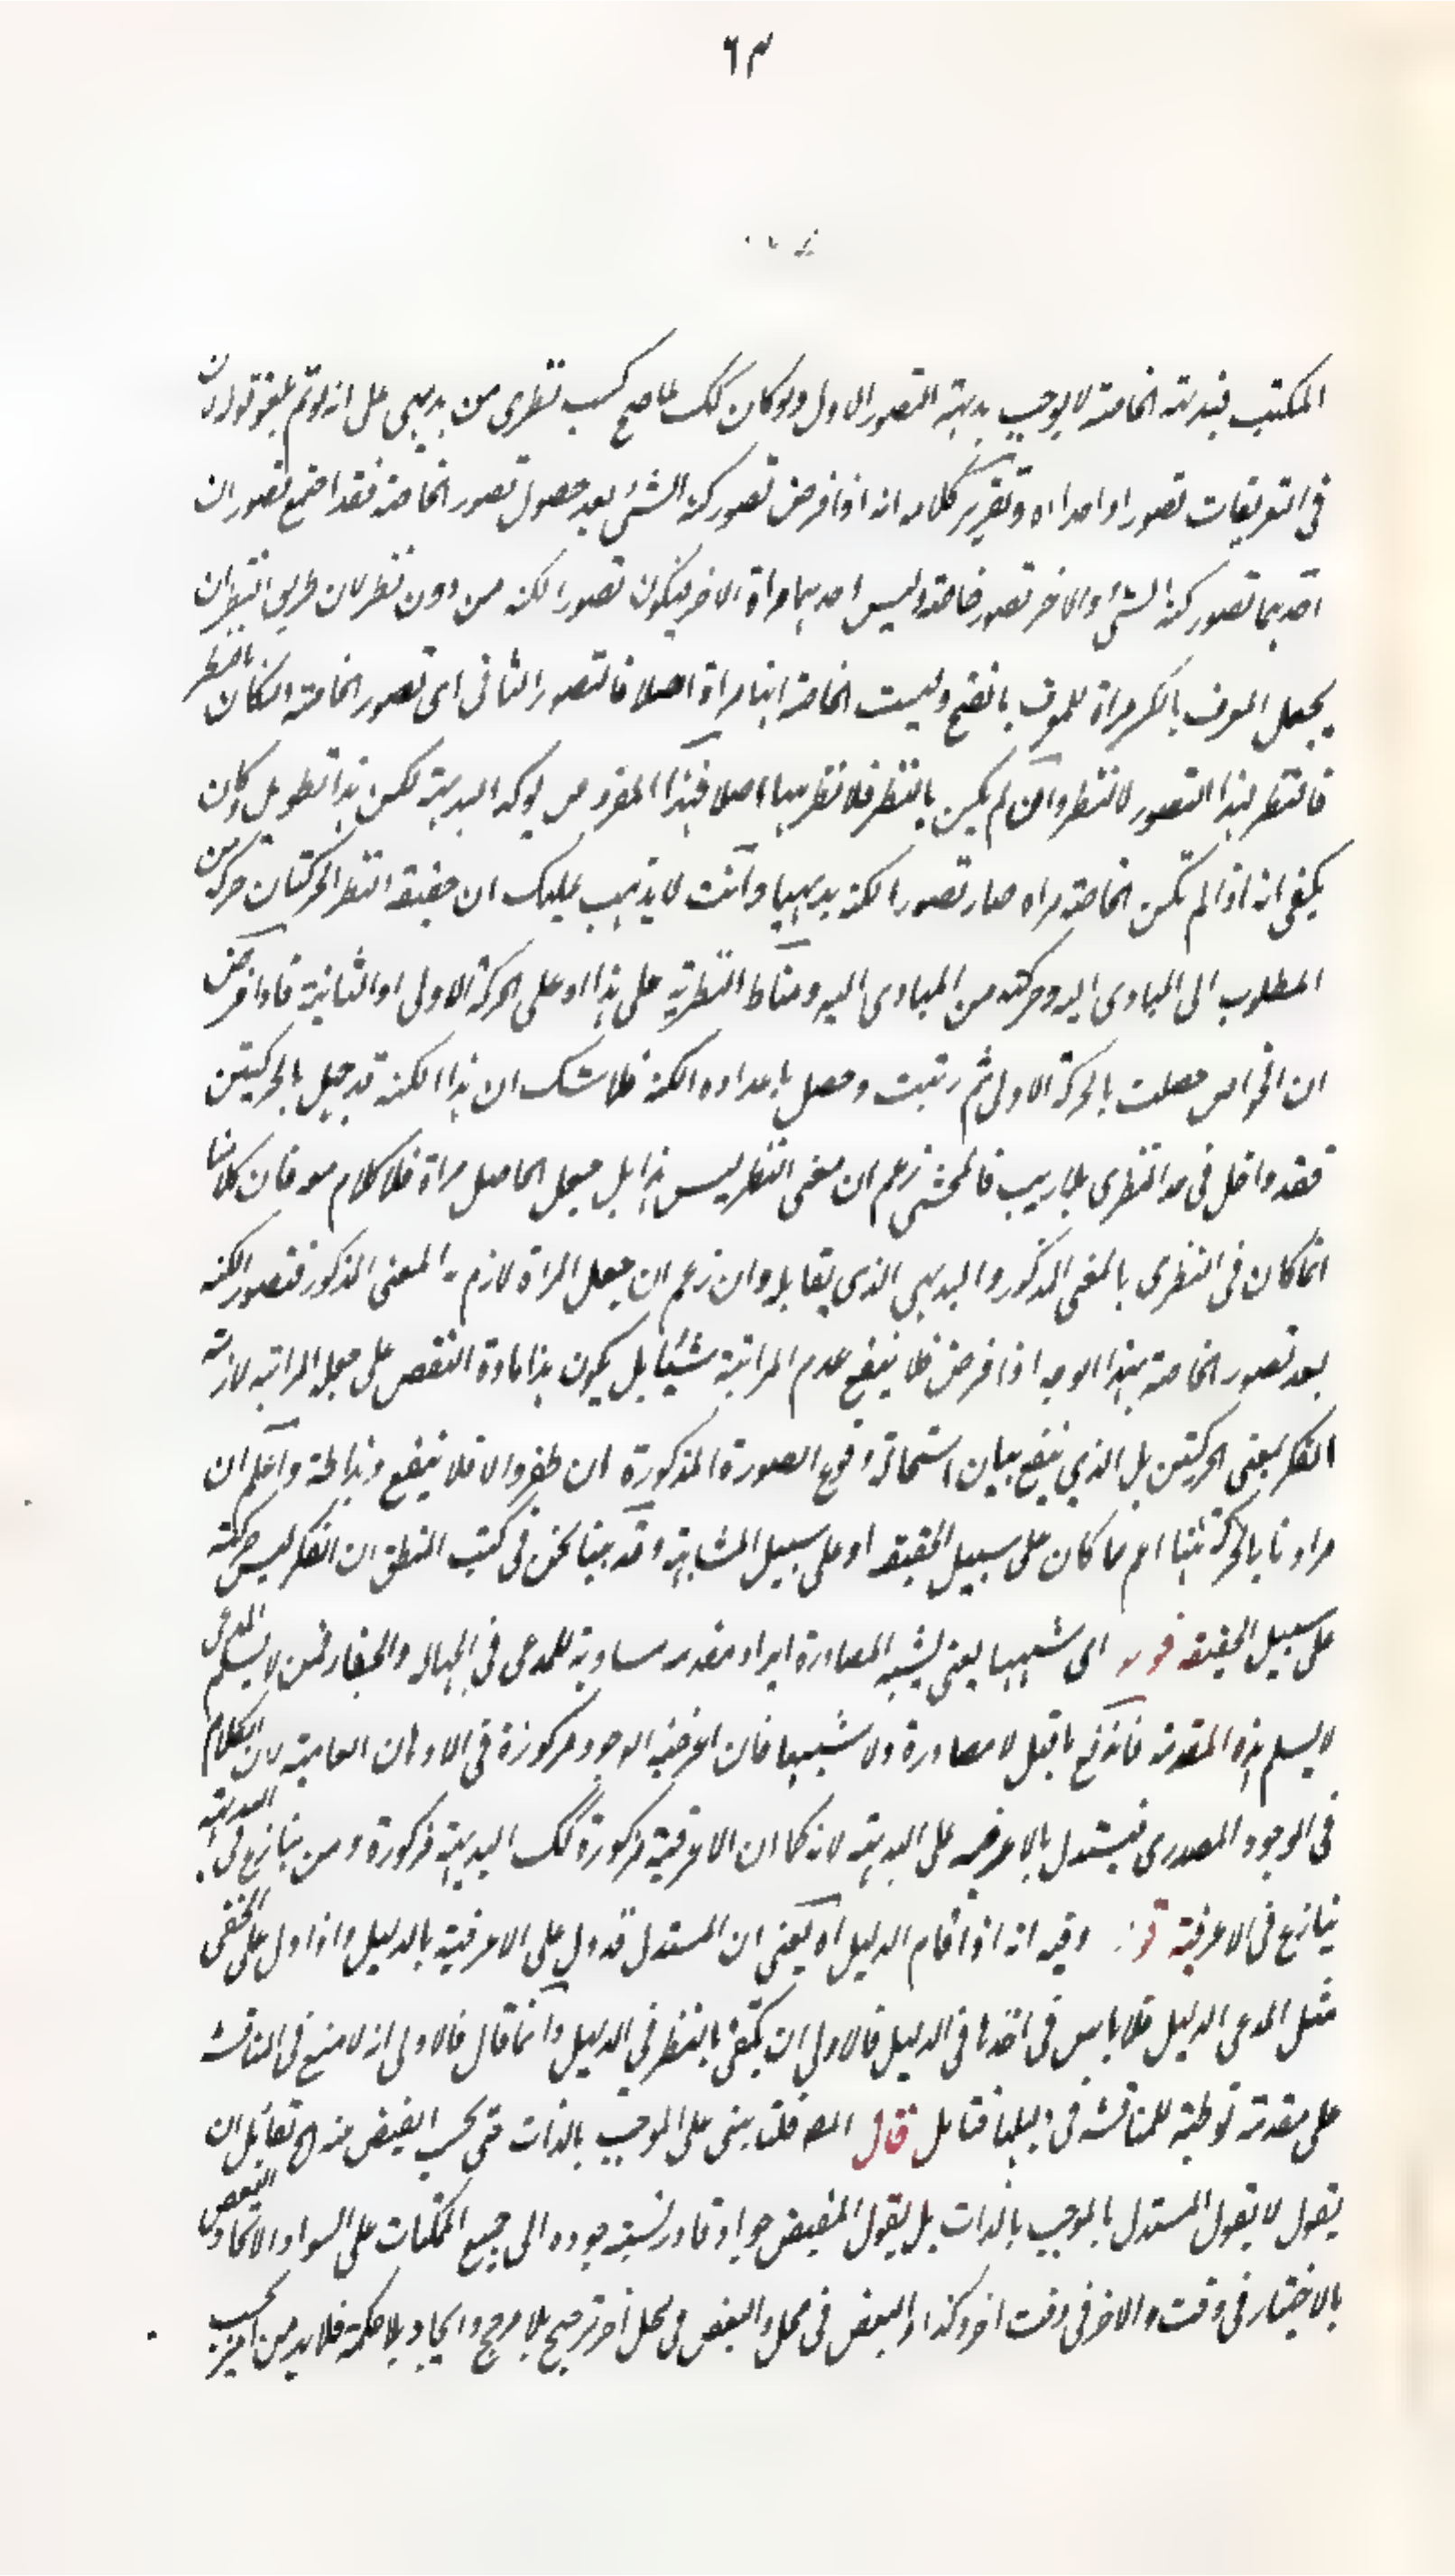 ٦٣
المكتسب فبديهة الخاصة لا يوجب بديهة التصور الاول ولو كان كك لما صح كسب نظرى من بديهى على انه لو تم
فى التعريفات تصورا واحدا اه وتقرير كلامه انه اذا فرض تصور كنه الشئ بعد حصول تصور الخاصة فقد اجتمع تصوران
احدهما تصور كنه الشئ والاخر تصور خاصته وليس احدهما مراة الاخر فيكون تصور الكنه من دون نظر لان طريق النظر ان
يجعل المعرف بالكسر مراة للمعرف بالفتح وليست الخاصة ههنا مراة اصلا فالتصور الثانى اى تصور الخاصة ان كان بالنظر
فالنظر لهذا التصور لا نظر وان لم يكن بالنظر فلا نظر ههنا اصلا فهذا المفروض يؤكد البديهة لكن هذا تطويل وكان
يكفى انه اذا لم تكن الخاصة مراه صار تصور الكنه بديهيا وانت لا يذهب عليك ان حقيقة النظر الحركتان حركة من
المطلوب الى المبادى اليه وحركته من المبادى اليه ومناط النظرية على هذا او على الحركة الاولى او الثانية فاذا فرض
ان الخواص حصلت بالحركة الاولى ثم رتبت وحصل باعداده الكنه فلا شك ان هذا الكنه قد حصل بالحركتين
فقد داخل فى حد النظرى بلا ريب فالمحشى زعم ان معنى النظر ليس هذا بل جعل الحاصل مراة فلا كلام معه فان كلامنا
انما كان فى النظرى بالمعنى المذكور والبديهى الذى يقابله وان زعم ان جعل المراة لازم المعنى المذكور فتصور الكنه
بعد تصور الخاصة بهذا الوجه اذا فرض فلا ينفع عدم المراتية شيئا بل يكون هذا مادة النقض على جعل المراتية لازمة
الفكر بمعنى الحركتين بل الذى ينفع بيان استحالة وقوع الصورة المذكورة ان ظفر والا فلا ينفع واعلم ان
مرادنا بالحركة ههنا اعم مما كان على سبيل الحقيقة او على سبيل المشابهة وقد بينا نحن فى كتب المنطق ان الفكر ليس حركة
على سبيل الحقيقة قوله اى شبيهها يعنى يشبه المصادرة ايراد مقدمة مساوية للمدعى فى الجهالة والخفاء فمن لا يسلم المدعى
لا يسلم هذه المقدمة فاندفع ما قيل لا مصادرة ولا شبيهها فان اعرفية الوجود مركوزة فى الاذهان العامية لان الكلام
فى الوجود المصدرى فيستدل بالاعرفية على البديهة لانه كما ان الاعرفية مركوزة كك البديهة مركوزة ومن ينازع فى البديهة
ينازع فى الاعرفية قوله وفيه انه اذا اقام الدليل اه يعنى ان المستدل قد دل على الاعرفية بالدليل واذا دل على الخفى
مثل المدعى الدليل فلا باس فى اخذها فى الدليل فالاولى ان يكتفى بالنظر فى الدليل وانما قال فالاولى انه لا منع فى المناقشة
على مقدمة توطية للمناقشة فى دليلها فتامل قال المص قلنا يبنى على الموجب بالذات حتى يجب الفيض منه اه لقائل ان
يقول لا يقول المستدل بالموجب بالذات بل يقول المفيض جواد قادر نسبة جوده الى جميع الممكنات على السواء والاتحاد البعض
بالاختيار فى وقت والاخر فى وقت اخر وكذا البعض فى محل والبعض فى محل اخر ترجيح بلا مرجح وايجاد بلا حكمة فلا بد من